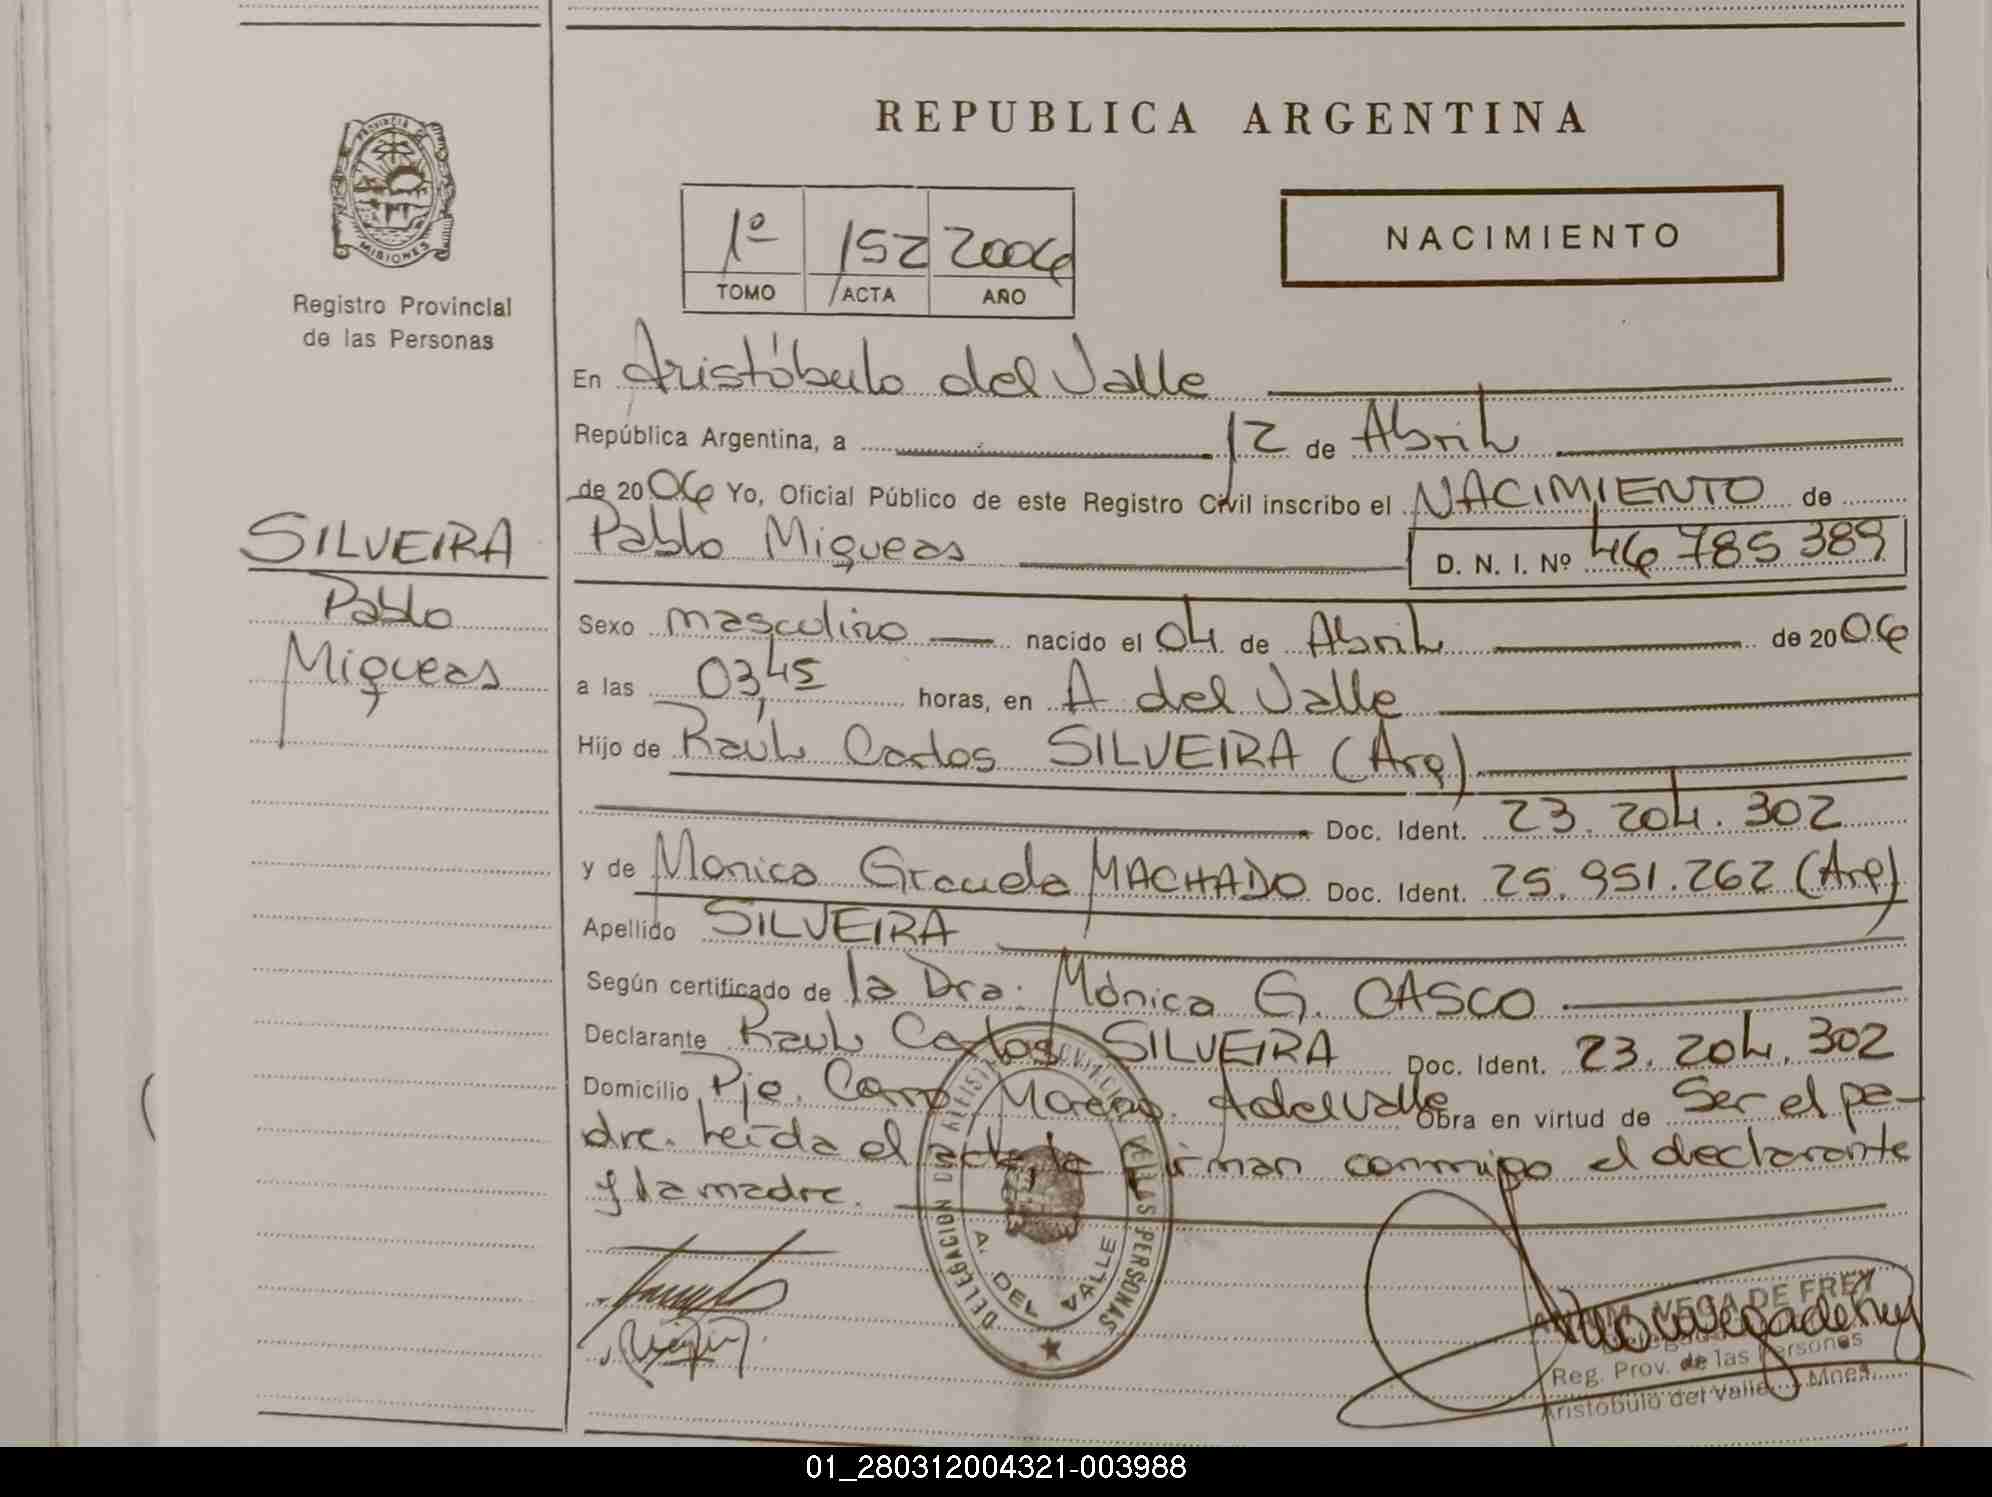 REPUBLICA ARGENTINA
PROVINCIA DE
MISIONES
Registro Provincial
de las Personas
1º 152 2006
TOMO ACTA AÑO
NACIMIENTO
En Aristóbulo del Valle
República Argentina, a 12 de Abril
de 2006 Yo, Oficial Público de este Registro Civil inscribo el NACIMIENTO de
SILVEIRA
Pablo
Miqueas
Pablo Miqueas D. N. I. Nº 46 785 389
Sexo masculino nacido el 04 de Abril de 2006
a las 03,45 horas, en A del Valle
Hijo de Raúl Carlos SILVEIRA (Arg)
Doc. Ident. 23.204.302
y de Monica Graciela MACHADO Doc. Ident. 25.951.262 (Arg)
Apellido SILVEIRA
Según certificado de la Dra. Mónica G. CASCO
Declarante Raul Carlos SILVEIRA Doc. Ident. 23.204.302
Domicilio Pje. Cerro Moreno. A del Valle Obra en virtud de Ser el pa-
dre. Leída el acta, la firman conmigo el declarante
y la madre.
DELEGACION DEL REGISTRO PROVINCIAL DE LAS PERSONAS
A. DEL VALLE
VEGA DE FREY
Delegada
Reg. Prov. de las Personas
Aristóbulo del Valle - Mnes.
01_280312004321-003988